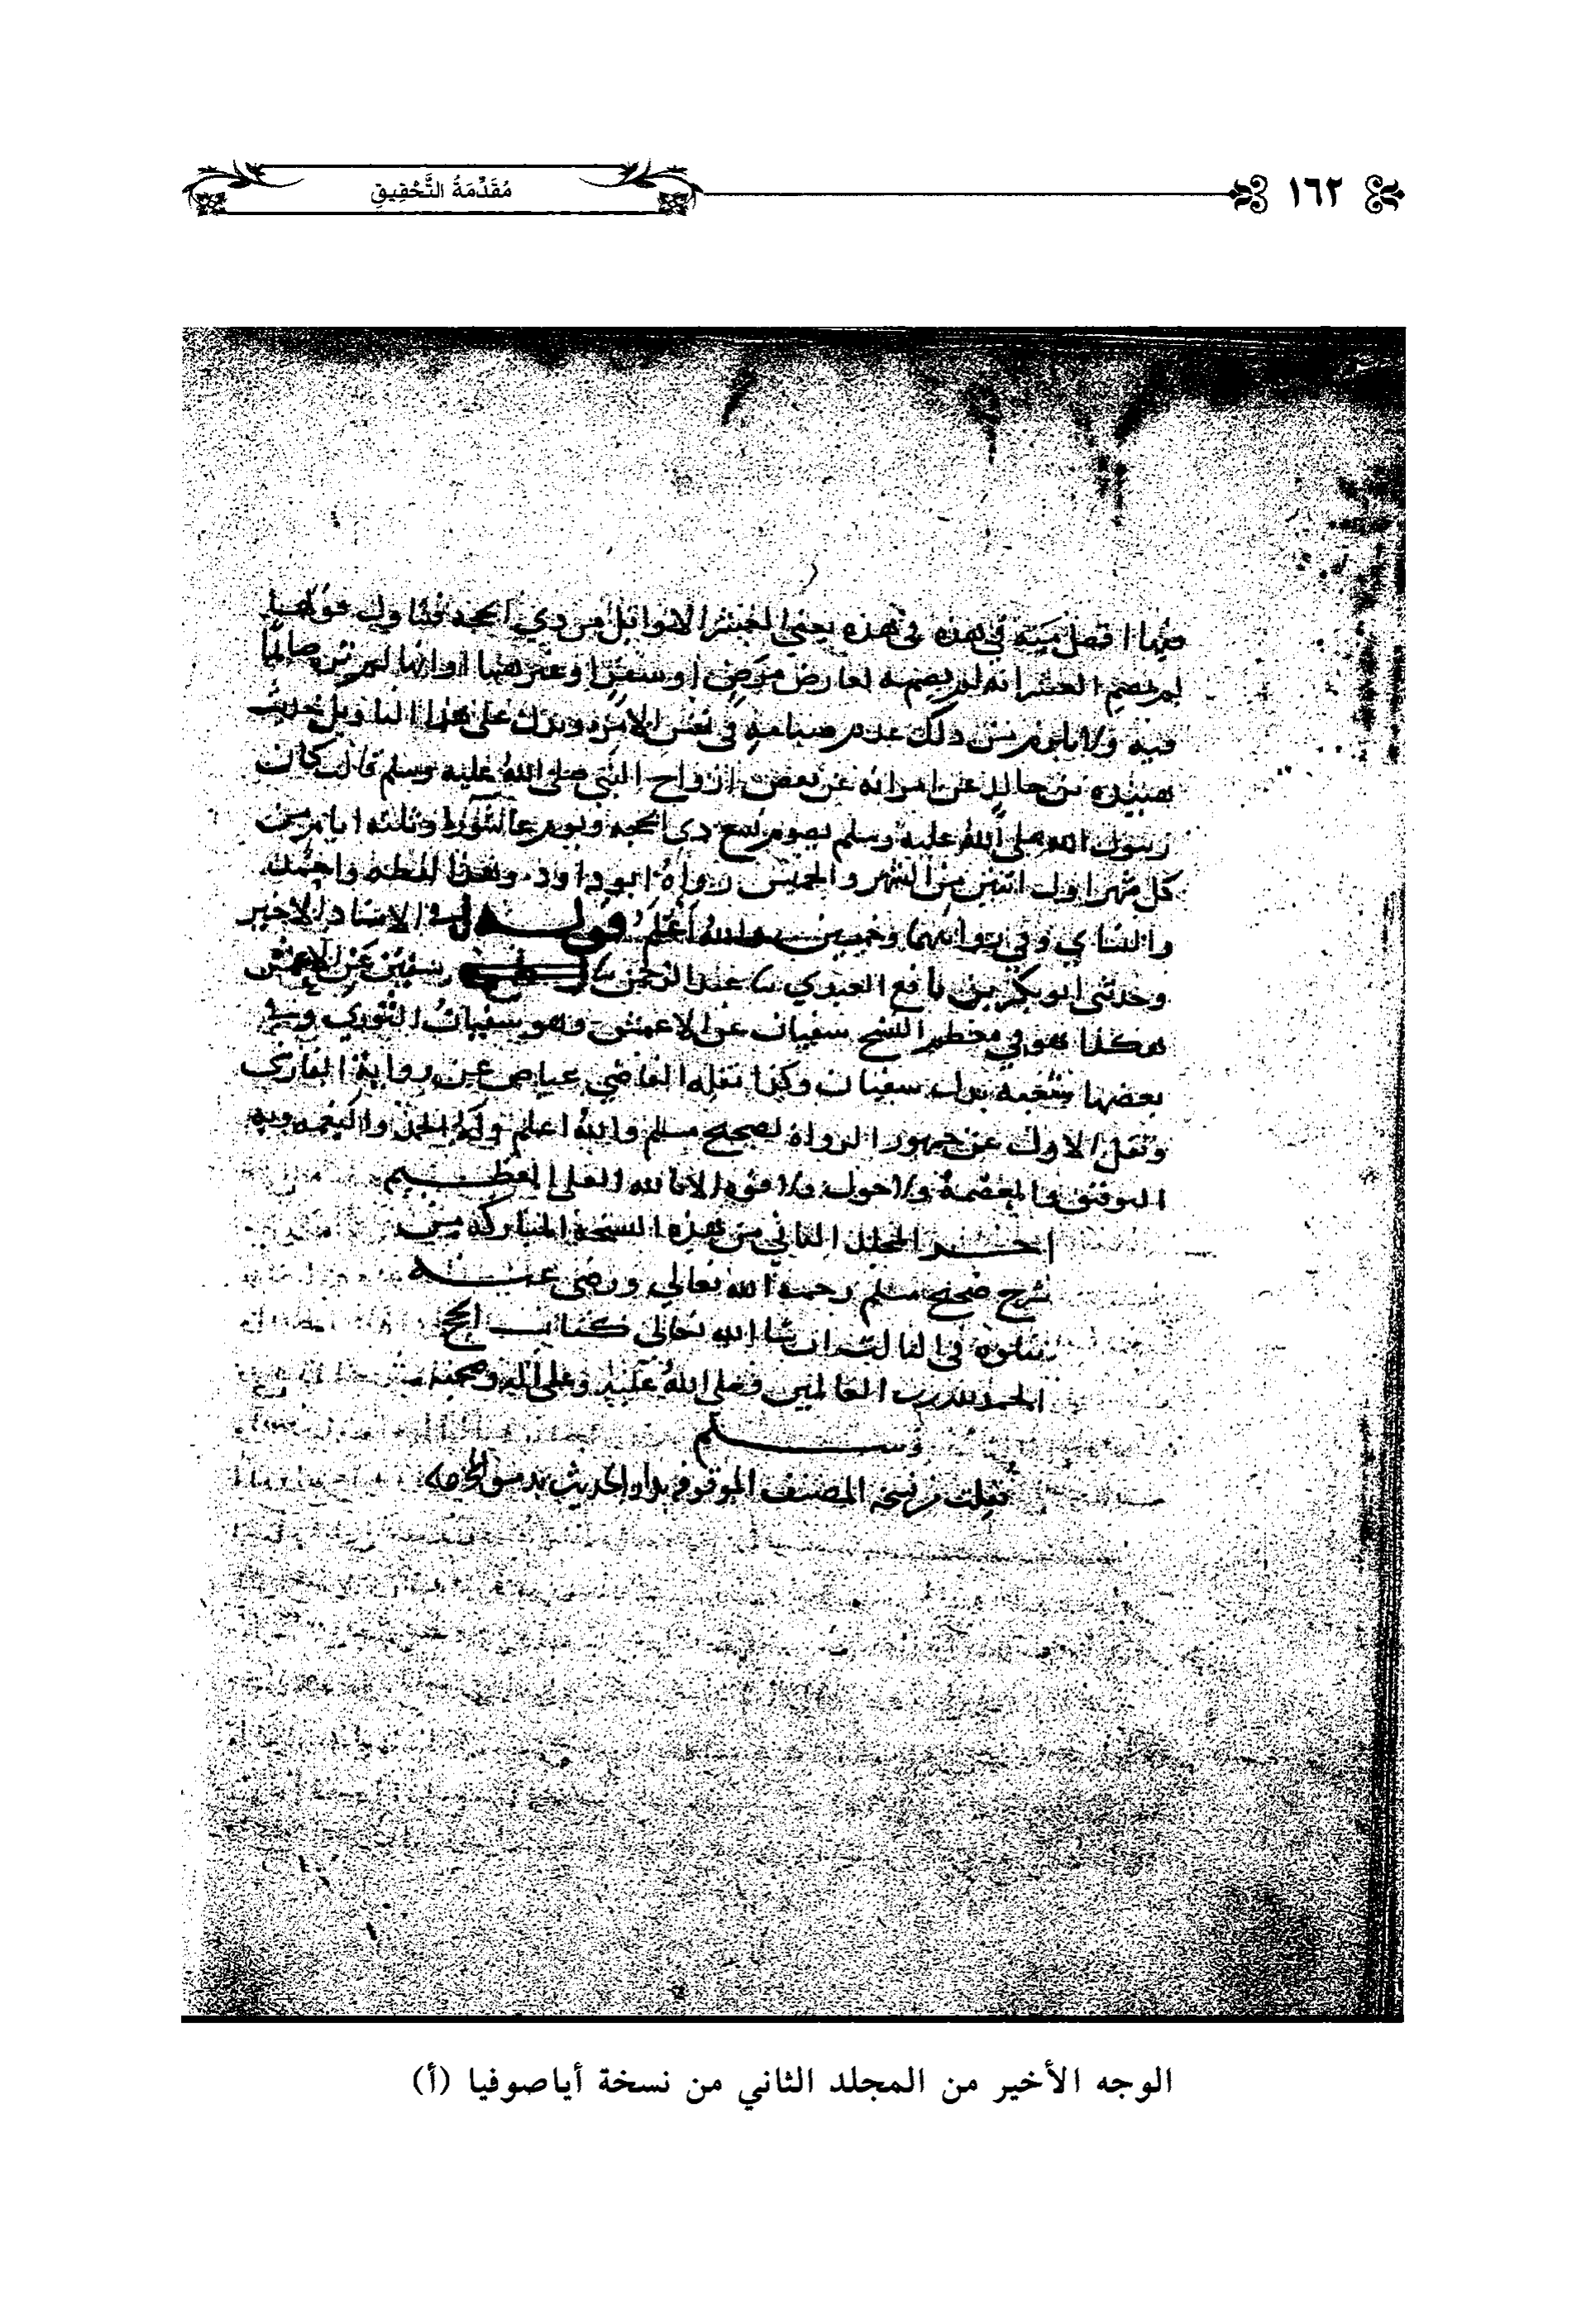 ١٦٢
مُقَدِّمَةُ التَّحْقِيقِ
فيها افضل منه في هذه في هذه يعني العشر الاوائل من ذي الحجه فتناول قولها
لم يصم العشر انه لم يصمه لعارض مرض او سفر او غيرهما او انها لم تره صائما
فيه ولا يلزم من ذلك عدم صيامه في نفس الامر ويدل على هذا التاويل حديث
هنيده بن خالد عن امراته عن بعض ازواج النبي صلى الله عليه وسلم قالت كان
رسول الله صلى الله عليه وسلم يصوم تسع ذي الحجه ويوم عاشورا وثلثه ايام من
كل شهر اول اثنين من الشهر والخميس رواه ابو داود وهذا لفظه واحمد
والنساي وفي روايتهما وخميسين والله أعلم قوله في الاسناد الاخير
وحدثني ابو بكر بن نافع العبدي ثنا عبد الرحمن ثنا سفين عن الاعمش
هكذا هو في معظم النسخ سفيان عن الاعمش وهو سفيان الثوري وفي
بعضها شعبه بدل سفيان وكذا نقله القاضي عياض عن رواية الفارسي
ونقل الاول عن جمهور الرواة لصحيح مسلم والله اعلم وله الحمد والنعمه وبه
التوفيق والعصمة ولا حول ولا قوه الا بالله العلي العظيم
اخر المجلد الثاني من هذه النسخة المباركه من
شرح صحيح مسلم رحمه الله تعالى ورضى عنه
يتلوه في الثالث ان شا الله تعالى كتاب الحج
الحمد لله رب العالمين وصلى الله عليه وعلى اله وصحبه
وسلم
نقلت من نسخه المصنف الموقوفه بدار الحديث بدمشق
الوجه الأخير من المجلد الثاني من نسخة أياصوفيا (أ)